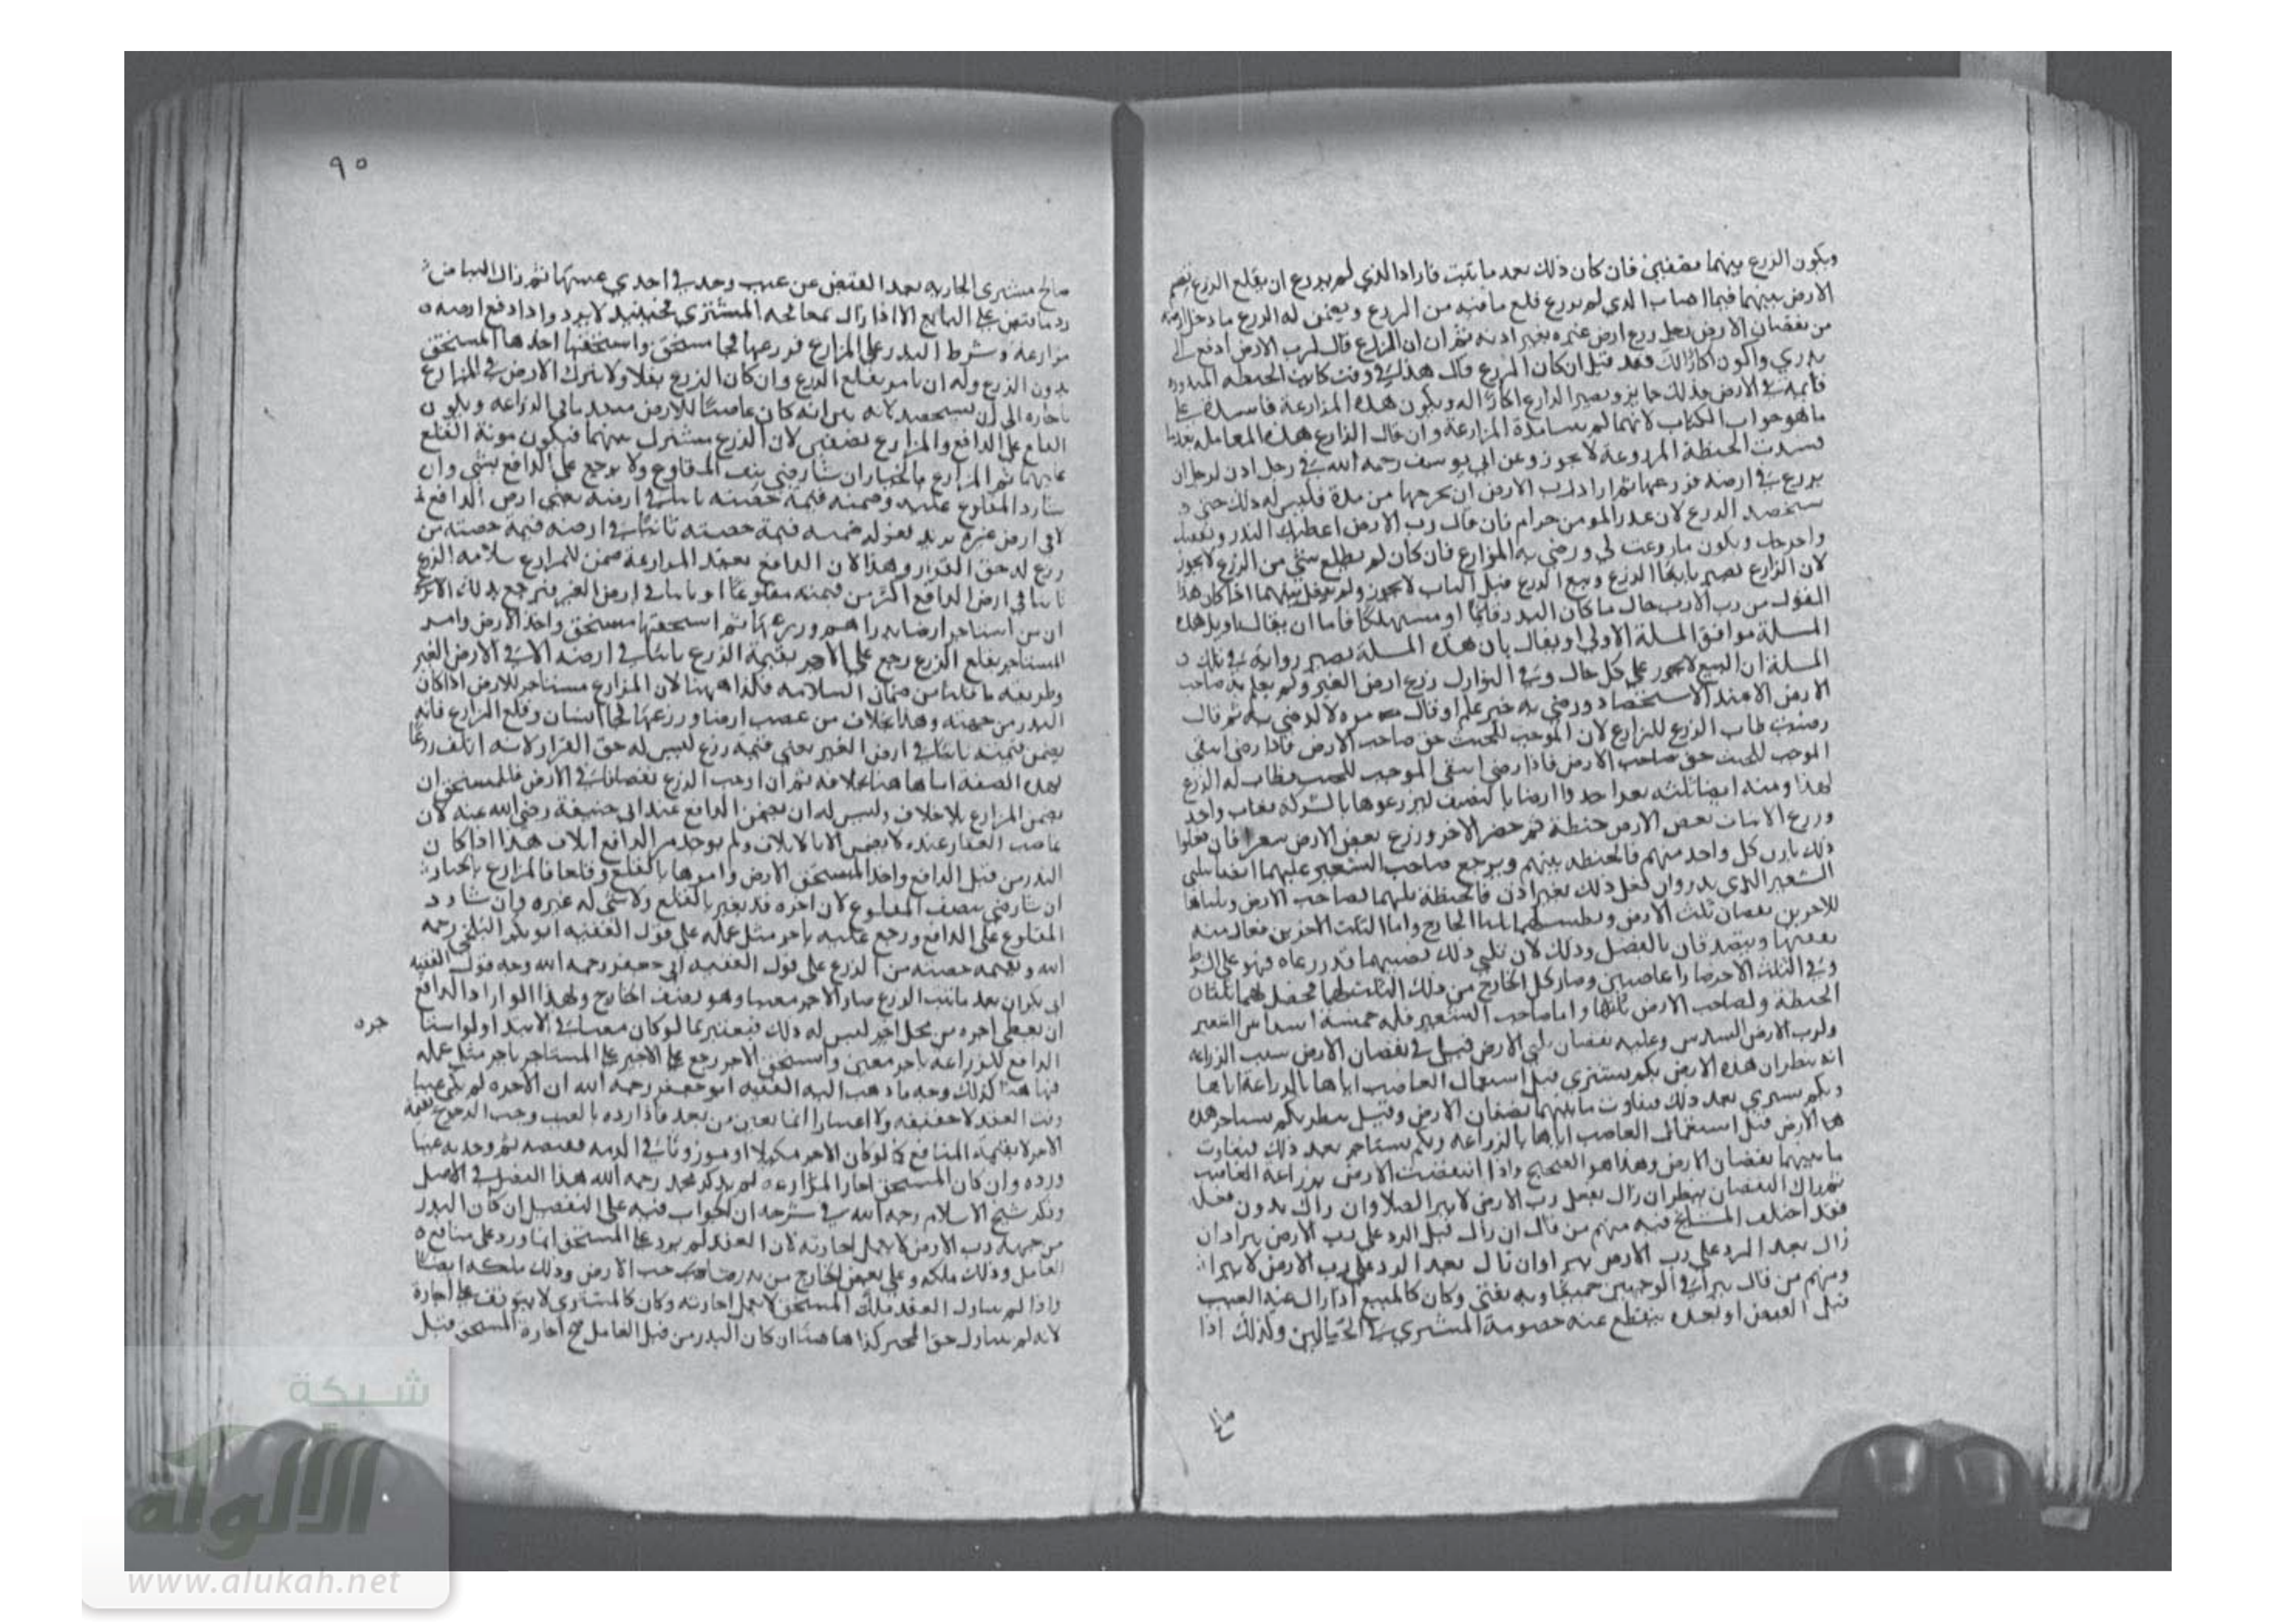 ويكون الزرع بينهما نصفين فان كان ذلك بعد ما نبت فاراد الذي لم يزرع ان يقلع الزرع يقسم
الارض بينهما فما اصاب الذي لم يزرع قلع ما فيه من الزرع ويضمن له الزرع ما دخل ارضه
من نقصان الارض رجل زرع ارض غيره بغير اذنه ثم ان المزارع قال لرب الارض ادفع لي
بذري واكون اكارا لك فقد قيل ان كان المزارع قال هذا في وقت كانت الحنطة المبذورة
قائمة في الارض فذلك جايز ويصير الزارع اكارا له ويكون هذه المزارعة فاسدة على
ما هو جواب الكتاب لانهما لم مدة المزارعة وان قال الزارع هذه المعاملة بعد ما
فسدت الحنطة المزروعة لا يجوز وعن ابي يوسف رحمه الله في رجل اذن لرجل ان
يزرع في ارضه فزرعها ثم اراد رب الارض ان يخرجها من مدة فليس له ذلك حتى
يستحصد الزرع لان غدر المومن حرام فان قال رب الارض اعطيك البذر ونفقتك
واخرجك ويكون ما زرعت لي ورضي به المزارع فان كان لم يطلع شي من الزرع لا يجوز
لان الزارع يصير بايعا الزرع وبيع الزرع قبل النبات لا يجوز ولم يفصل بينهما اذا كان هذا
القول من رب الارض حال ما كان البذر قائما او مستهلكا فاما ان يقال تاويل هذه
المسلة موافق المسلة الاولى او يقال بان هذه المسلة تصير رواية في تلك
المسلة ان البيع لا يجوز على كل حال وفي النوازل زرع ارض الغير ولم يعلم به صاحب
الارض الا عند الاستحصاد ورضي به حين علم او قال مرة لا ارضي به ثم قال
رضيت طاب الزرع للزارع لان الموجب للخبث حق صاحب الارض فاذا رضي انتفى
الموجب للخبث حق صاحب الارض فاذا رضي انتفى الموجب للخبث فطاب له الزرع
لهذا ومنه ايضا ثلثه نفر اخذوا ارضا بالنصف ليزرعوها بالشركة فغاب واحد
وزرع الاثنان بعض الارض حنطة ثم حضر الاخر وزرع بعض الارض شعيرا فان فعلوا
ذلك باذن كل واحد منهم فالحنطة بينهم ويرجع صاحب الشعير عليهما ايضا بثلثي
الشعير الذي بذر وان فعل ذلك بغير اذن فالحنطة ثلثها لصاحب الارض وثلثاها
للاخرين نقصان ثلث الارض ويطيب لهما ثلثا الخارج واما الثلث الاخر يرفعان منه
نفقتهما ويتصدقان بالفضل وذلك لان ثلثي ذلك نصيبهما قد زرعاه فهو على الشرط
وفي الثلث الاخر صارا غاصبين وصار كل الخارج من ذلك الثلث لهما فحصل لهما ثلثان
الحنطة ولصاحب الارض ثلثها واما صاحب الشعير فله خمسة اسداس الشعير
ولرب الارض السدس وعليه نقصان ثلثي الارض قيل في نقصان الارض بسبب الزراعة
انه ينظر ان هذه الارض بكم يشتري قبل استعمال الغاصب اياها بالزراعة اياها
وبكم يشتري بعد ذلك فيفاوت ما بينهما نقصان الارض وقيل ينظر بكم يستاجر هذه
هذا الارض قبل استعمال الغاصب اياها بالزراعة وبكم يستاجر بعد ذلك فيفاوت
ما بينهما نقصان الارض وهذا هو الصحيح واذا انتقصت الارض بزراعة الغاصب
ثم زال النقصان ينظر ان زال بفعل رب الارض لا يبرا اصلا وان زال بدون فعله
فقد اختلف المشايخ فيه منهم من قال ان زال قبل الرد على رب الارض يبرا وان
زال بعد الرد على رب الارض يبرا وان زال بعد الرد على رب الارض لا يبرا
ومنهم من قال يبرا في الوجهين جميعا وبه يفتى وكان كالمبيع اذا زال عنه العيب
قبل القبض او بعده ينقطع عنه خصومة المشتري في الحالين وكذلك اذا
صالح
٩٥
صالح مشتري الجارية بعد القبض عن عيب وجد في احدي عينيها ثم زال البياض
رد ما قبض على البايع الا اذا زال بمعالجة المشتري فحينيذ لا يرد واذا دفع ارضه
مزارعة وشرط البذر على المزارع فزرعها فجا مستحق واستحقها اخذها المستحق
بدون الزرع وله ان يامره بقلع الزرع وان كان الزرع بقلا ولا يترك الارض في المزارع
باجارة الى ان يستحصد لانه انه كان غاصبا للارض الزراعة ويكون
القلع على الدافع والمزارع نصفين لان الزرع مشترك بينهما فيكون مونة القلع
عليهما ثم المزارع بالخيار ان شا رضي بنصف المقلوع ولا يرجع على الدافع بشي وان
شا رد المقلوع عليه وضمنه قيمة حصته نابتا في ارضه يعني ارض الدافع
لا في ارض غيره يريد بقوله ضمنه قيمة حصته نابتا في ارضه قيمة حصته من
زرع له حق القرار وهذا لان الدافع بعقد المزارعة ضمن للمزارع سلامة الزرع
نابتا في ارض الدافع اكثر من قيمته مقلوعا او نابتا في ارض الغير فيرجع بذلك
ان من استاجر ارضا بدراهم وزرعها ثم استحقها مستحق واخذ الارض وامر
المستاجر بقلع الزرع رجع على الاجر بقيمة الزرع نابتا في ارضه لا في الارض الغير
وطريقه ما قلنا من ضمان السلامة فكذا ههنا لان المزارع مستاجر للارض اذا كان
البذر من جهته وهذا بخلاف من غصب ارضا وزرعها فجا انسان وقلع الزرع فانه
يضمن قيمته نابتا في ارض الغير يعني قيمة زرع ليس له حق القرار لانه اتلف زرعا
بهذه الصفة اما ها هنا بخلافه ثم ان اوجب الزرع نقصانا في الارض فللمستحق ان
يضمن المزارع بلا خلاف وليس له ان يضمن الدافع عند ابي حنيفة رضي الله عنه لان
غاصب العقار عنده لا يضمن الا بالاتلاف ولم يوجد من الدافع اتلاف هذا اذا كان
البذر من قبل الدافع واخذ المستحق الارض وامرها بالقلع وقلعا فالمزارع بالخيار
ان شا رضي بنصف المقلوع لان اجره قد تغير بالقلع ولا شي له غيره وان شا رد
المقلوع على الدافع ورجع عليه باجر مثل عمله على قول الفقيه ابو بكر البلخي رحمه
الله وبقيمة حصته من الزرع على قول الفقيه ابي جعفر رحمه الله وجه قول الفقيه
ابي بكر ان بعد ما نبت الزرع صار الاجر معينا وهو نصف الخارج ولهذا لو اراد الدافع
ان يعطي اجره من محل اخر ليس له ذلك فيعتبر بما لو كان معينا في الابتدا ولو استا
جره
الدافع للزراعة باجر معين واستحق الاجر رجع على الاجير على المستاجر باجر مثل عمله
فها هنا كذلك وجه ما ذهب اليه الفقيه ابو جعفر رحمه الله ان الاجرة لم يكن عينا
وقت العقد لا حقيقة ولا اعتبارا انما تعين من بعد فاذا رده بالعيب وجب الرجوع بقيمة
الاجر لا بقيمة المنافع كما لو كان الاجر مكيلا او موزونا في الذمة فقبضه ثم وجد به عيبا
ورده وان كان المستحق اجاز المزارعة لم يذكر محمد رحمه الله هذا الفصل في الاصل
وذكر شيخ الاسلام رحمه الله في شرحه ان الجواب فيه على التفصيل ان كان البذر
من جهة رب الارض لا يعمل اجازته لان العقد لم يرد على المستحق انما ورد على منافع
العامل وذلك ملكه وعلى بعض الخارج من بذر صاحب الارض وذلك ملكه ايضا
واذا لم يتناول العقد ملك المستحق لا يعمل اجازته وكان كالمشتري لا يتوقف على اجازة
لانه لم يتناول حق المجيز كذا ها هنا ان كان البذر من قبل العامل صح اجازة المستحق قبل
شبكة
الألوكة
www.alukah.net